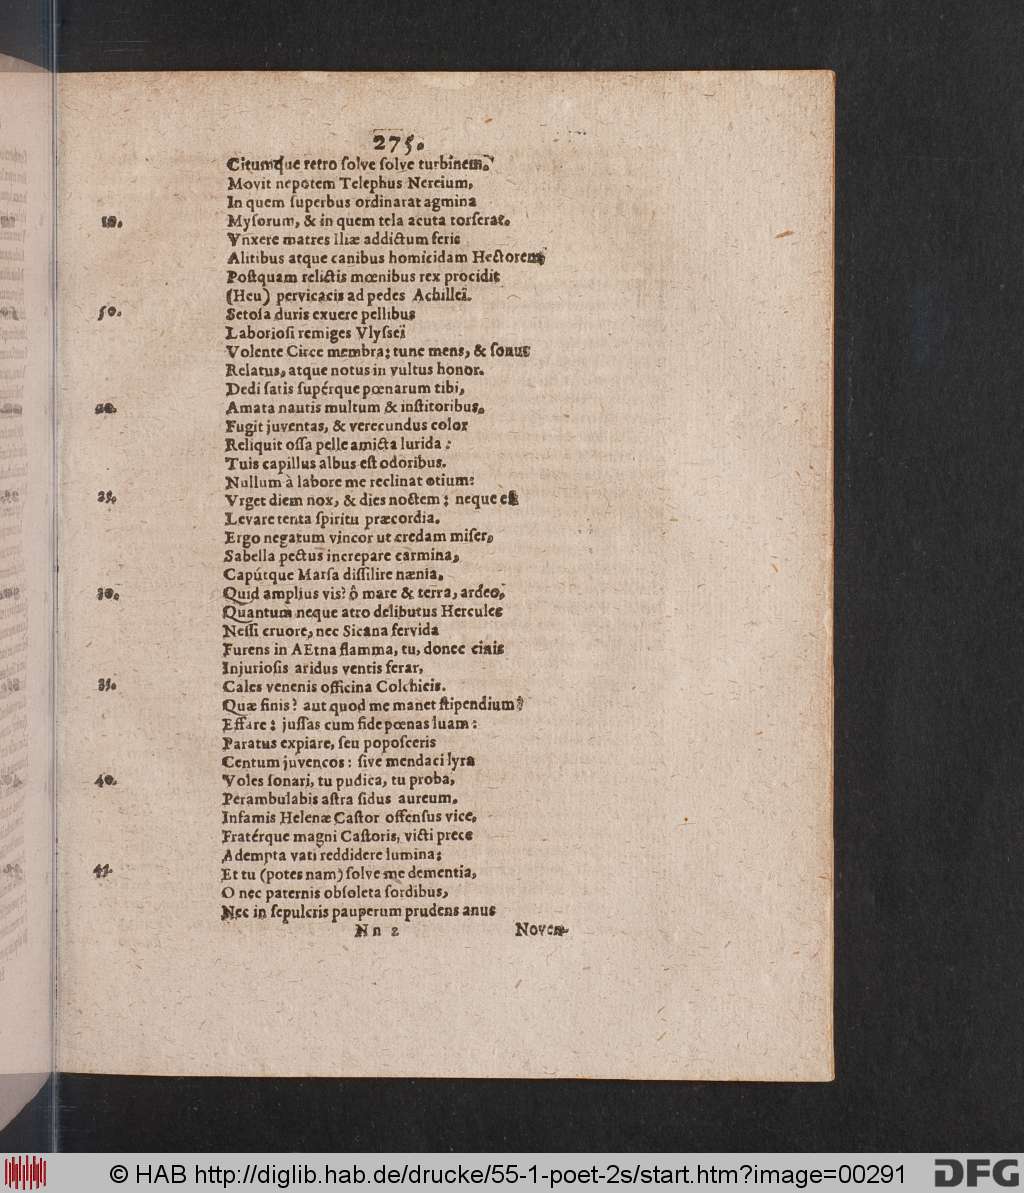 275.
Citumque retro ſolve ſolve turbinem.
Movit nepotem Telephus Nereium,
In quem ſuperbus ordinarat agmina
10. Myſorum, & in quem tela acuta torſerat.
Vnxere matres Iliæ addictum feris
Alitibus atque canibus homicidam Hectorem,
Poſtquam relictis mœnibus rex procidit
(Heu) pervicacis ad pedes Achilleï.
50. Setoſa duris exuere pellibus
Laborioſi remiges Vlyſseï
Volente Circe membra; tunc mens, & ſonus
Relatus, atque notus in vultus honor.
Dedi ſatis ſupérque pœnarum tibi,
20. Amata nautis multum & inſtitoribus.
Fugit juventas, & verecundus color
Reliquit oſſa pelle amicta lurida:
Tuis capillus albus eſt odoribus.
Nullum à labore me reclinat otium:
25. Vrget diem nox, & dies noctem; neque eſt
Levare tenta ſpiritu præcordia.
Ergo negatum vincor ut credam miſer,
Sabella pectus increpare carmina,
Capútque Marſa diſſilire nænia.
30. Quid amplius vis? ô mare & terra, ardeo,
Quantum neque atro delibutus Hercules
Neſſi cruore, nec Sicana fervida
Furens in AEtna flamma, tu, donec cinis
Injurioſis aridus ventis ferar,
35. Cales venenis officina Colchicis.
Quæ finis? aut quod me manet ſtipendium?
Effare: juſſas cum fide pœnas luam:
Paratus expiare, ſeu popoſceris
Centum juvencos: ſive mendaci lyra
40. Voles ſonari, tu pudica, tu proba,
Perambulabis aſtra ſidus aureum.
Infamis Helenæ Caſtor offenſus vice,
Fratérque magni Caſtoris, victi prece
Adempta vati reddidere lumina;
45. Et tu (potes nam) ſolve me dementia,
O nec paternis obſoleta ſordibus,
Nec in ſepulcris pauperum prudens anus
N n 2 Noven-
© HAB http://diglib.hab.de/drucke/55-1-poet-2s/start.htm?image=00291 DFG